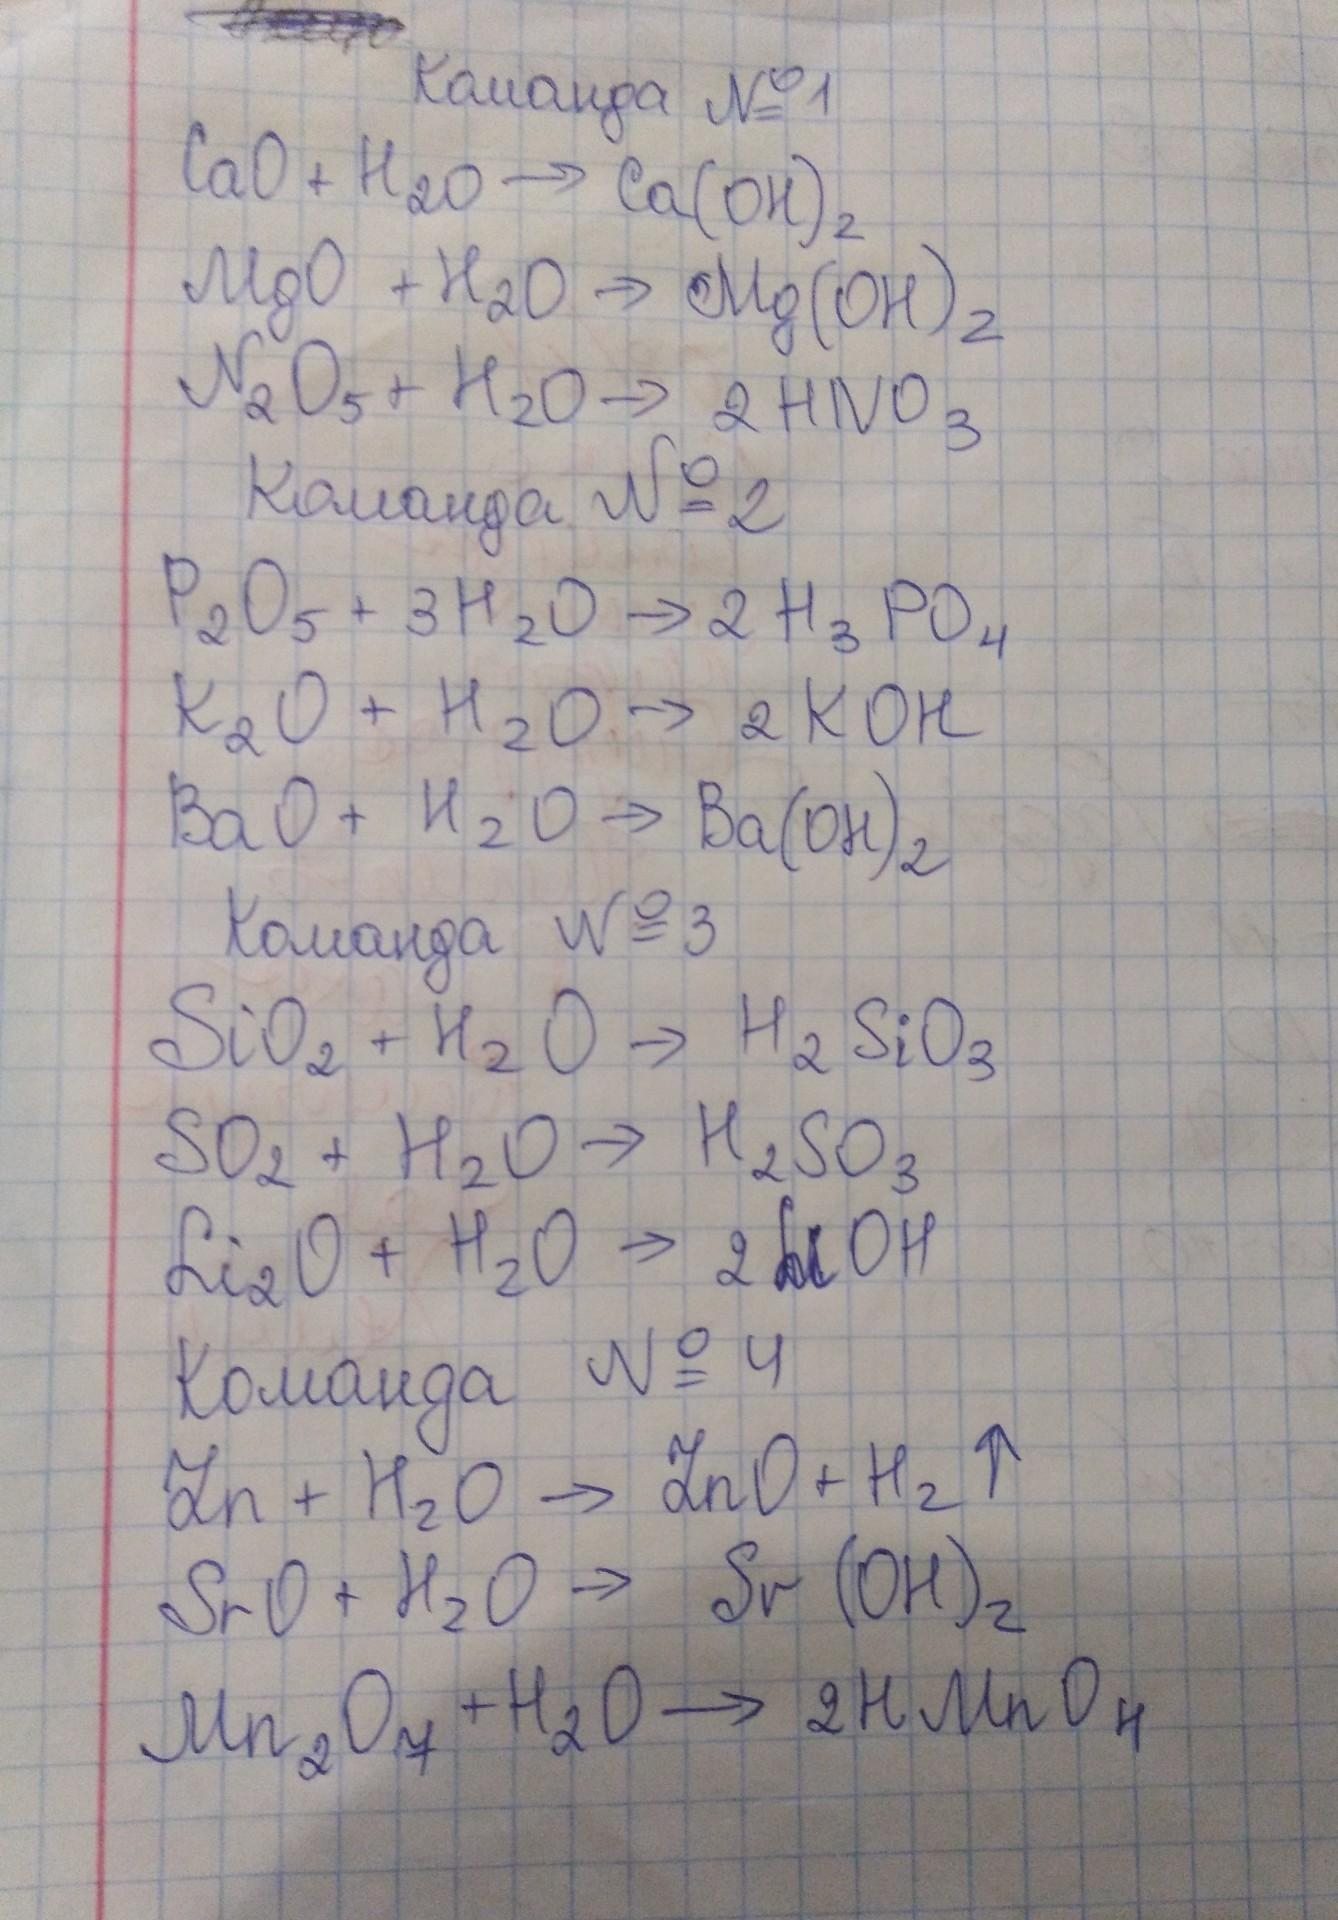 Команда №1
CaO + H2O → Ca(OH)2
MgO + H2O → Mg(OH)2
N2O5 + H2O → 2HNO3
Команда №2
P2O5 + 3H2O → 2H3PO4
K2O + H2O → 2KOH
BaO + H2O → Ba(OH)2
Команда №3
SiO2 + H2O → H2SiO3
SO2 + H2O → H2SO3
Li2O + H2O → 2LiOH
Команда №4
Zn + H2O → ZnO + H2↑
SrO + H2O → Sr(OH)2
Mn2O7 + H2O → 2HMnO4